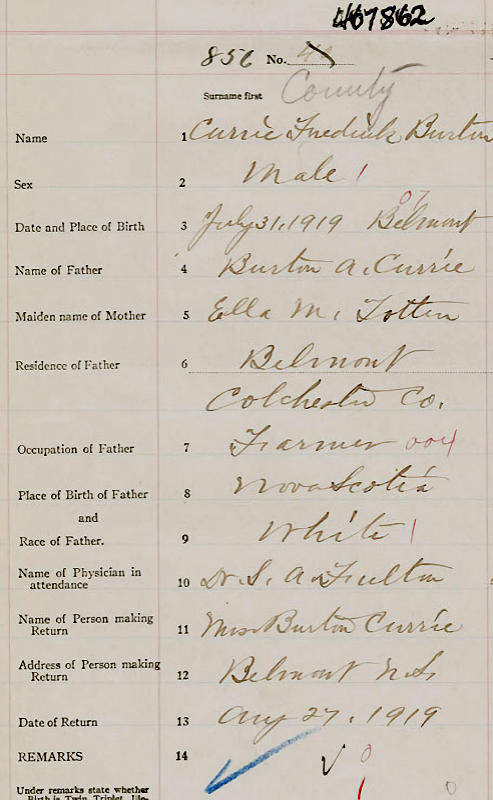 467862
856 No. 44
Surname first County
Name 1 Currie Fredrick Burton
Sex 2 Male 1
07
Date and Place of Birth 3 July 31, 1919 Belmont
Name of Father 4 Burton A. Currie
Maiden name of Mother 5 Ella M. Totten
Residence of Father 6 Belmont
Colchester Co.
Occupation of Father 7 Farmer 004
Place of Birth of Father 8 Nova Scotia
and
Race of Father. 9 White 1
Name of Physician in
attendance 10 Dr. S. A. Fulton
Name of Person making
Return 11 Mrs Burton Currie
Address of Person making
Return 12 Belmont N.S
Date of Return 13 Aug 27, 1919
REMARKS 14 0
1 0
Under remarks state whether
Birth is Twin, Triplet, Ille-